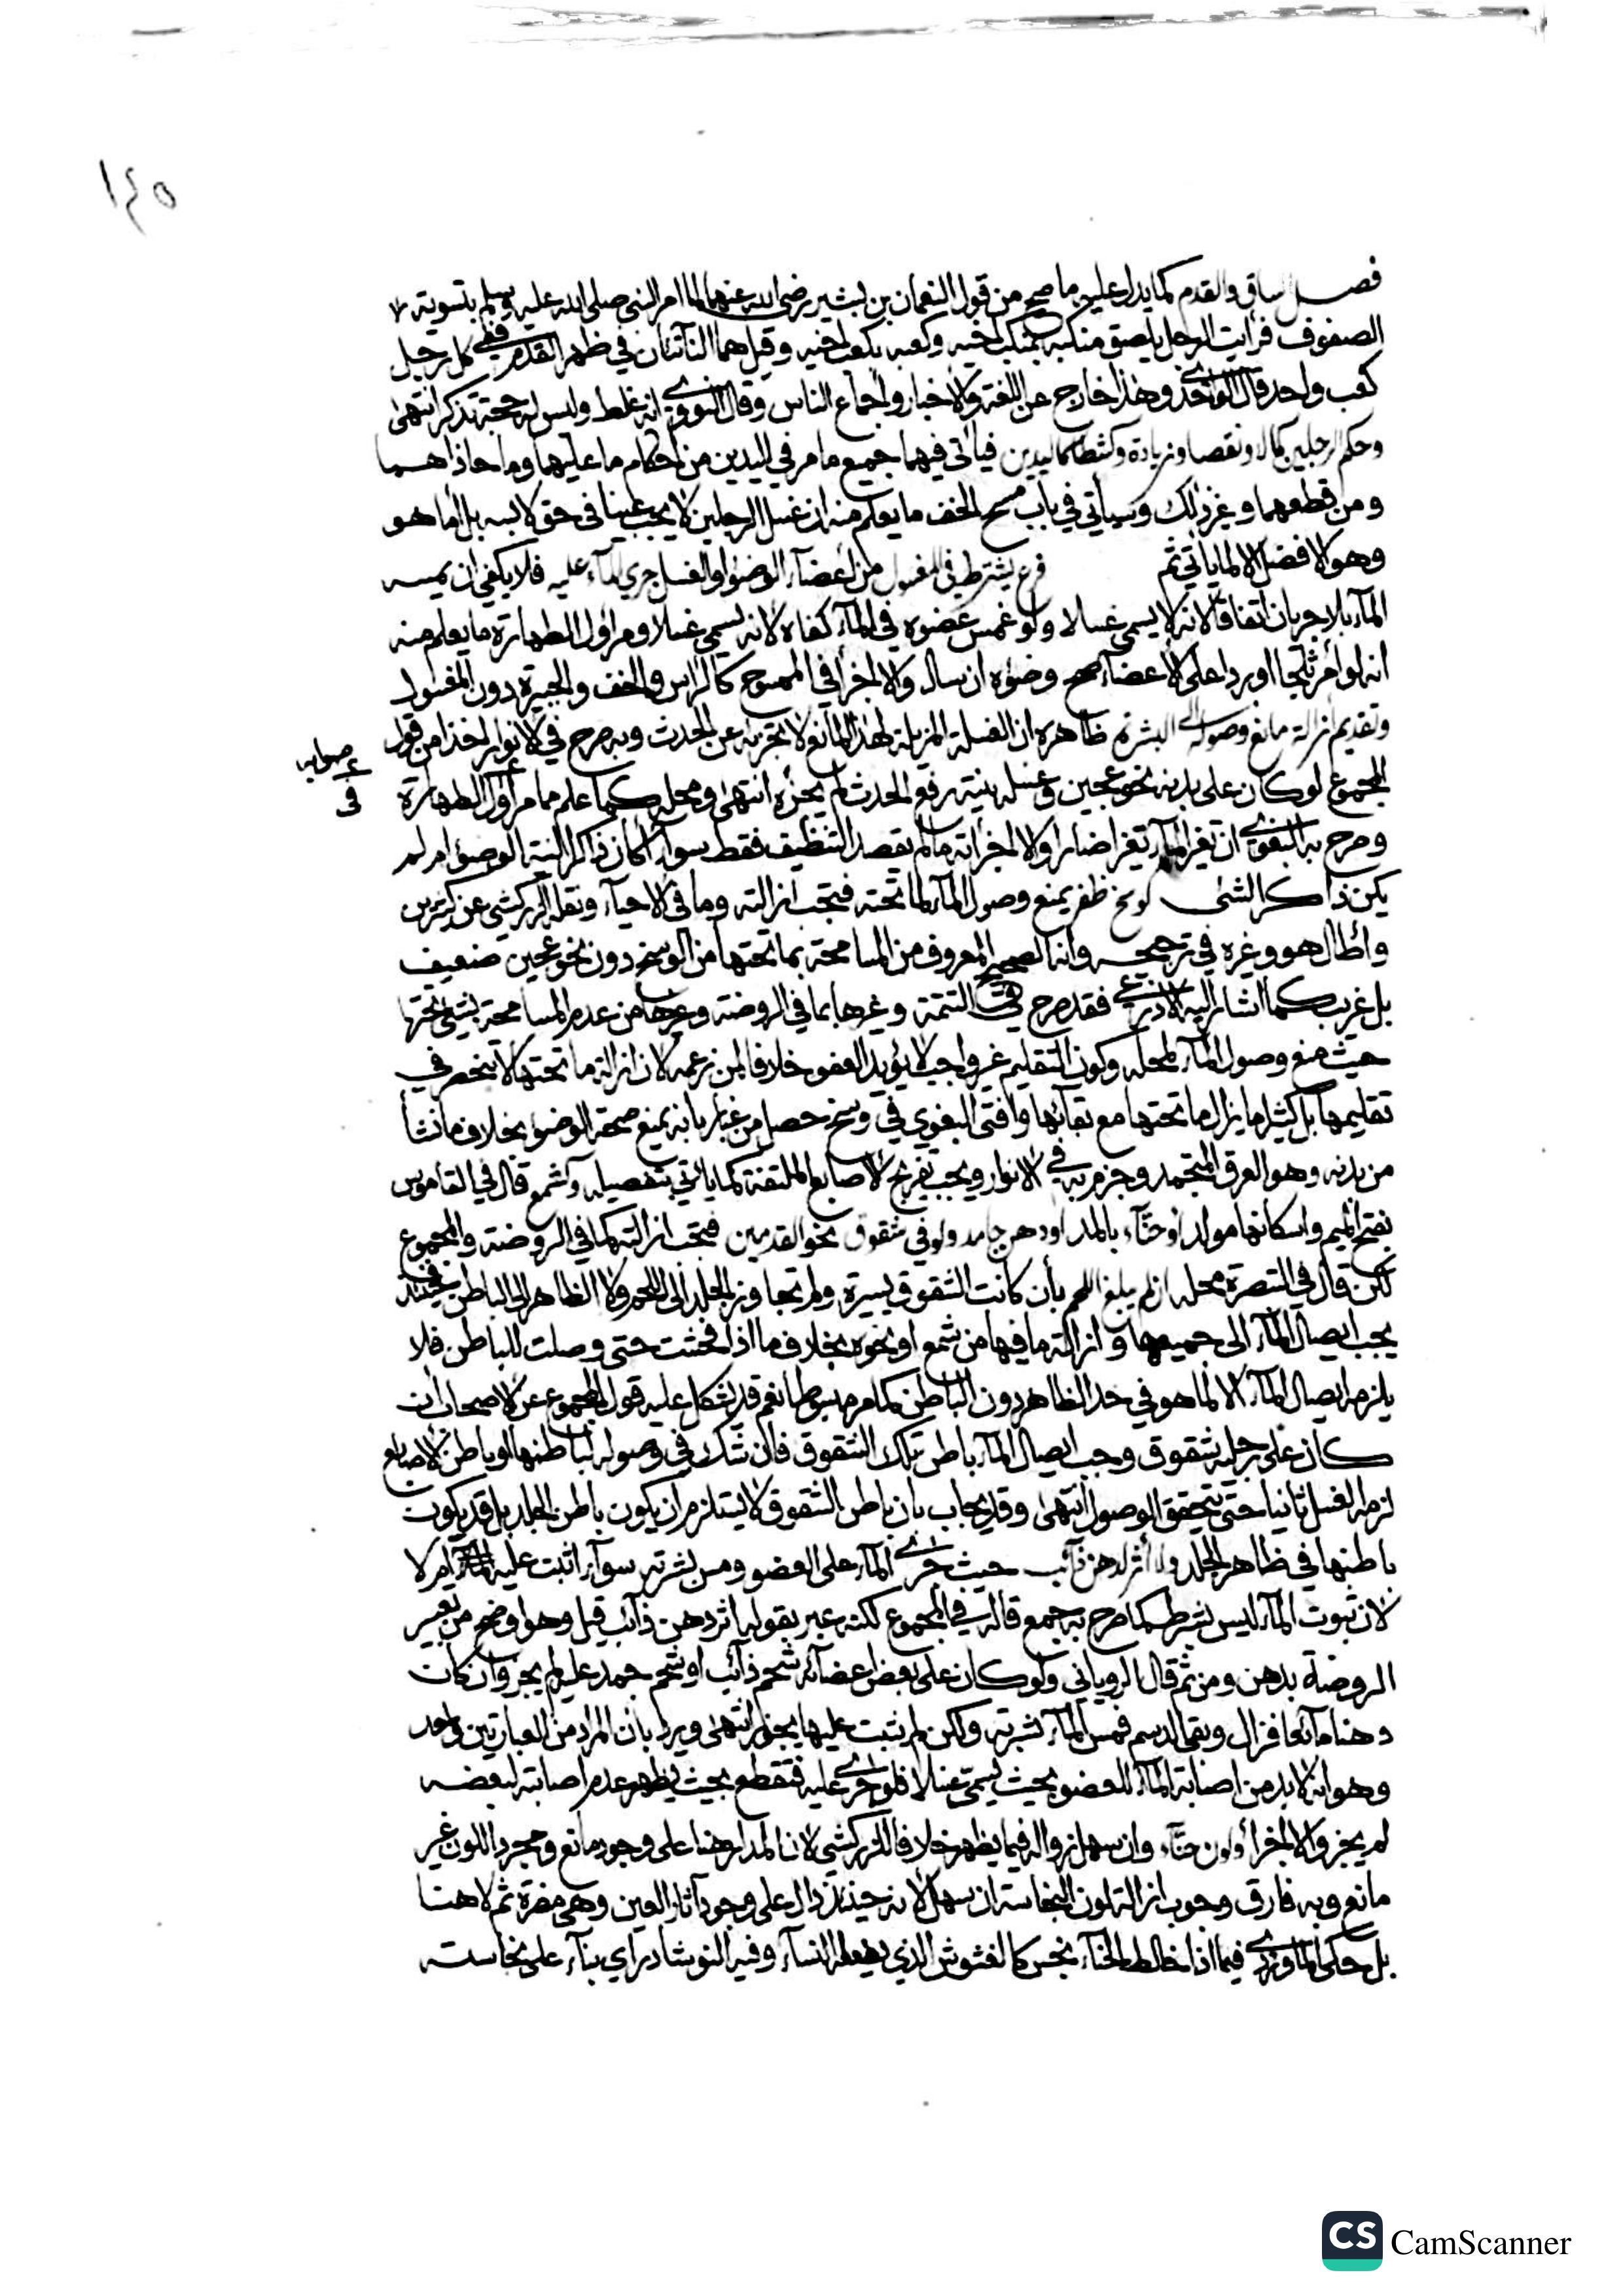 ١٤٥
فصل الساق والقدم كما يدل عليه ما صح من قول النعمان بن بشير رضي الله عنهما لما امر النبي صلى الله عليه وسلم بتسوية
الصفوف فرايت الرجل يلصق منكبه بمنكب اخيه وكعبه بكعب اخيه وقيل هما الناتئان في ظهر القدم ففي كل رجل
كعب واحد قال وهذا خارج عن اللغة والاخبار واجماع الناس وقال النووي انه غلط وليس له حجة تذكر انتهى
وحكم الرجلين كمالا ونقصا وزيادة وكشطا كاليدين فياتي فيهما جميع ما مر في اليدين من احكام ما عليهما وما حاذاهما
ومن قطعهما وغير ذلك وسياتي في باب مسح الخف ما يعلم منه ان غسل الرجلين لا يجب عينا في حق لابسه بل اما هو
وهو الافضل الا لما ياتي ثم فرع يشترط في المغسول من اعضاء الوضوا والغسل جري الماء عليه فلا يكفي ان يمسه
الماء بلا جريان اتفاقا لانه لا يسمى غسلا ولو غمس عضوه في الماء كفاه لانه يسمى غسلا ومر اول الطهارة ما يعلم منه
انه لو امر ثلجا او بردا على الاعضاء صح وضوه ان سال والا اجزا في الممسوح كالراس والخف والجبيرة دون المغسول
وتقديم ازالة مانع وصوله الى البشرة ظاهره ان الغسلة المزيلة لهذا المانع لا تجزيه عن الحدث وبه صرح في الانوار اخذا من قول
صوابه
في
المجموع لو كان على بدنه نحو عجين وغسله بنية رفع الحدث لم يجزه انتهى ومحله كما علم مما مر اول الطهارة
وصرح به البغوي ان تغير الماء تغيرا ضارا والا اجزاته ما لم يقصد التنظيف فقط سواء اكان ذاكرا لنية الوضوء ام لم
يكن ذاكرا لشي كوسخ ظفر يمنع وصول الماء لما تحته فتجب ازالته وما في الاحياء ونقله الزركشي عن كثيرين
واطال هو وغيره في ترجيحه وانه الصحيح المعروف من المسامحة بما تحتها من الوسخ دون نحو عجين ضعيف
بل غريب كما اشار اليه الاذرعي فقد صرح في التتمة وغيرها بما في الروضة وغيرها من عدم المسامحة بشي تحتها
حيث منع وصول الماء لمحله وكون التقليم غير واجب لا يؤيد العفو خلافا لمن زعمه لان ازالة ما تحتها لا تنحصر في
تقليمها بل كثيرا ما يزال ما تحتها مع بقائها وافتى البغوي في وسخ حصل من غبار بانه يمنع صحة الوضوء بخلاف ما نشا
من بدنه وهو العرق المتجمد وجزم به في الانوار ويجب تفريج الاصابع الملتفة كما ياتي بتفصيله وكشمع قال في القاموس
بفتح الميم واسكانها مولد او حناء بالمد او دهن جامد ولو في شقوق نحو القدمين فتجب ازالته كما في الروضة والمجموع
لكن قال في التبصرة محله ان لم يبلغ اللحم بأن كانت الشقوق يسيرة ولم تجاوز الجلد الى اللحم ولا الظاهر الى الباطن فحينئذ
يجب ايصال الماء الى جميعها وازالة ما فيها من شمع او نحوه بخلاف ما اذا فحشت حتى وصلت للباطن فلا
يلزمه ايصال الماء الا لما هو في حد الظاهر دون الباطن كما مر مبسوطا نعم قد يشكل عليه قول المجموع عن الاصحاب ان
كان على رجليه شقوق وجب ايصال الماء باطن تلك الشقوق فان شك في وصوله لباطنها او باطن الاصابع
لزمه الغسل ثانيا حتى يتحقق الوصول انتهى وقد يجاب بان باطن الشقوق لا يستلزم ان يكون باطن الجلد بل قد يكون
باطنها في ظاهر الجلد ولا أثر لدهن ذائب حيث جرى الماء على العضو ومس بشرته سواء اثبت عليه ام لا
لان ثبوت الماء ليس بشرط كما صرح به جمع قاله في المجموع لكنه عبر بقوله اثر دهن ذائب قيل وهو اوضح من تعبير
الروضة بدهن ومن ثم قال الروياني ولو كان على بعض اعضائه شحم ذائب او شحم جمد عليه لم يجز وان كان
دهنا مائعا فزال وبقي الدسم فمس الماء بشرته ولكن لم يثبت عليها يجوز انتهى ويرد بان المراد من العبارتين واحد
وهو انه لا بد من اصابة الماء للعضو بحيث يسمى غسلا فلو جرى عليه فتقطع بحيث يظهر عدم اصابته لبعضه
لم يجز والا اجزأ ولون حناء وان سهل زواله فيما يظهر خلافا للزركشي لان المدار هنا على وجود مانع ومجرد اللون غير
مانع وبه فارق وجوب ازالة لون النجاسة ان سهل لانه حينئذ دال على وجود آثار العين وهي مضرة ثم لا هنا
بل حكى الماوردي فيما اذا خالط الحناء نجس كالغشوش الذي يفعله النساء وفيه النوشادر اي بناء على نجاسته
CS CamScanner